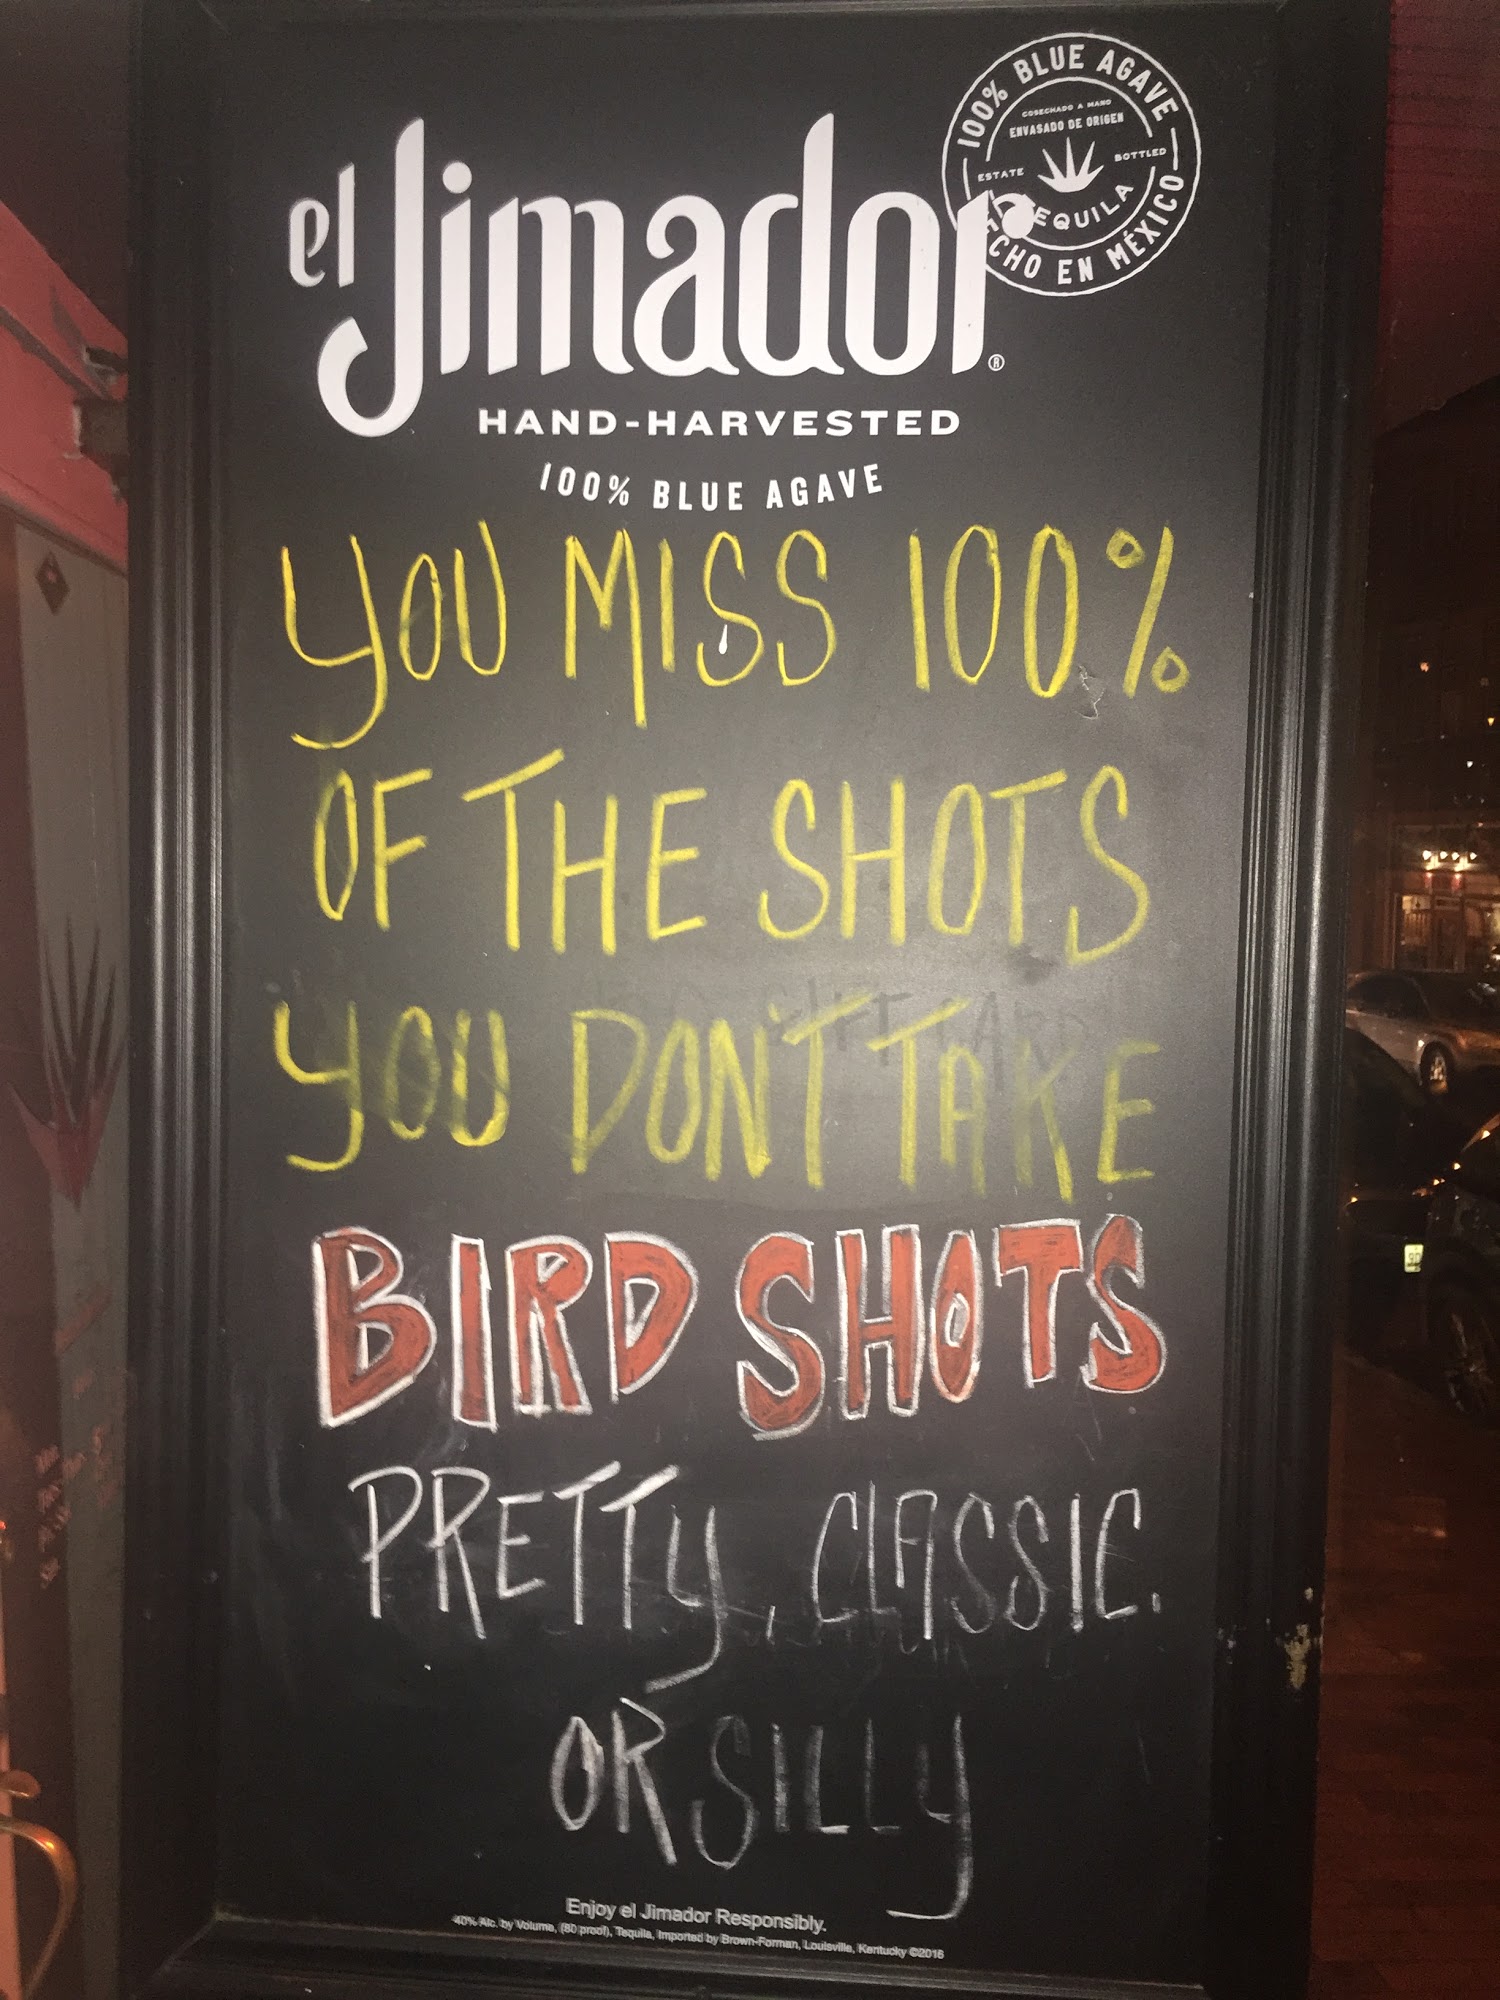 100% BLUE AGAVE
COSECHADO A MANO
ENVASADO DE ORIGEN
ESTATE BOTTLED
TEQUILA
HECHO EN MÉXICO
el Jimador®
HAND-HARVESTED
100% BLUE AGAVE
YOU MISS 100%
OF THE SHOTS
YOU DON'T TAKE
BIRD SHOTS
PRETTY, CLASSIC.
OR SILLY
Enjoy el Jimador Responsibly.
40% Alc. by Volume, (80 proof), Tequila, Imported by Brown-Forman, Louisville, Kentucky ©2016